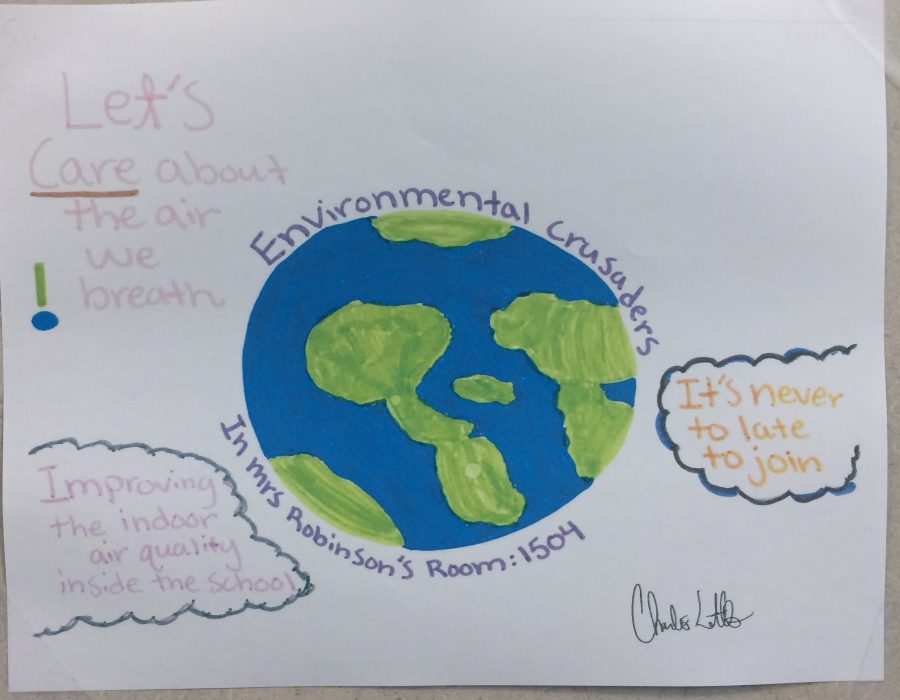 Let's
Care about
the air
we
breath
!
Environmental Crusaders
In mrs Robinson's Room: 1504
It's never
to late
to join
Improving
the indoor
air quality
inside the school
Charles